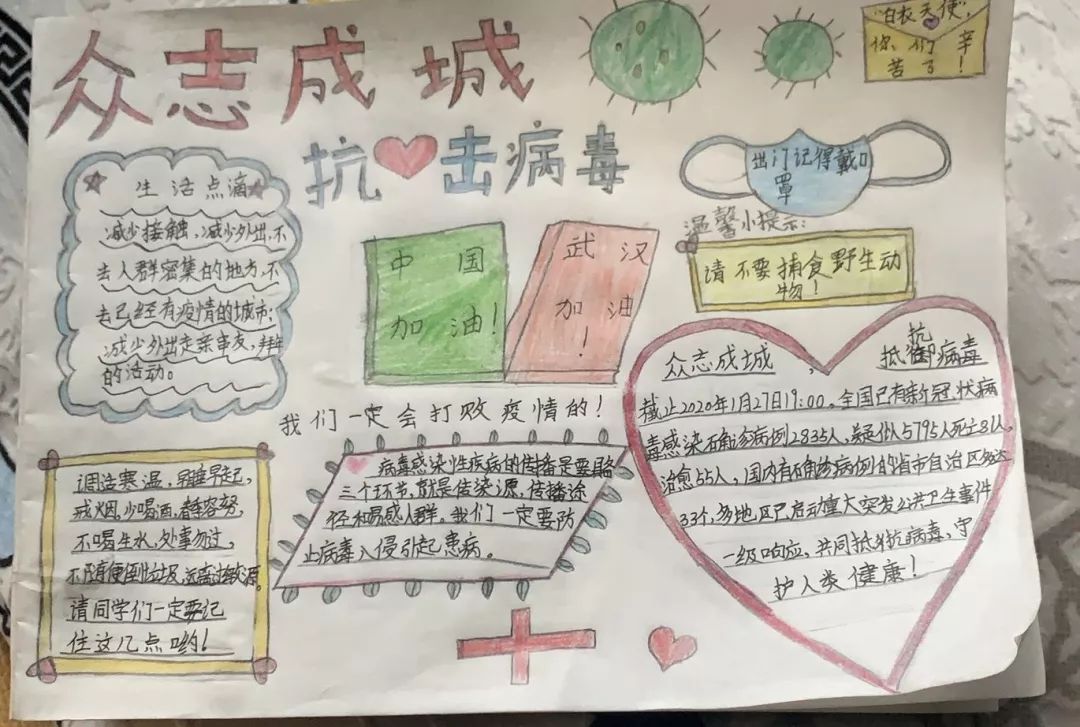 众志成城
抗击病毒
"白衣天使",
你们辛
苦了!
出门记得戴口
罩
温馨小提示:
请不要捕食野生动
物!
生活点滴
减少接触,减少外出,不
去人群密集的地方,不
去已经有疫情的城市;
减少外出走亲串友,
的活动。
中国
加油!
武汉
加油
!
我们一定会打败疫情的!
众志成城,抗
抵御病毒
截止2020年1月27日19:00,全国已有新冠状病
毒感染确诊病例2835人,疑似人5795人死亡81人,
治愈55人,国内有确诊病例的省市自治区多达
33个,多地区已启动重大突发公共卫生事件
一级响应,共同抵抗病毒,守
护人类健康!
调适寒温,早睡早起,
戒烟,少喝酒,
不喝生水,处事勿过,
不随便倒垃圾,远离源。
请同学们一定要记
住这几点哟!
病毒感染性疾病的传播是要
三个环节,就是传染源,传播途
径和易感人群,我们一定要防
止病毒入侵引起患病。